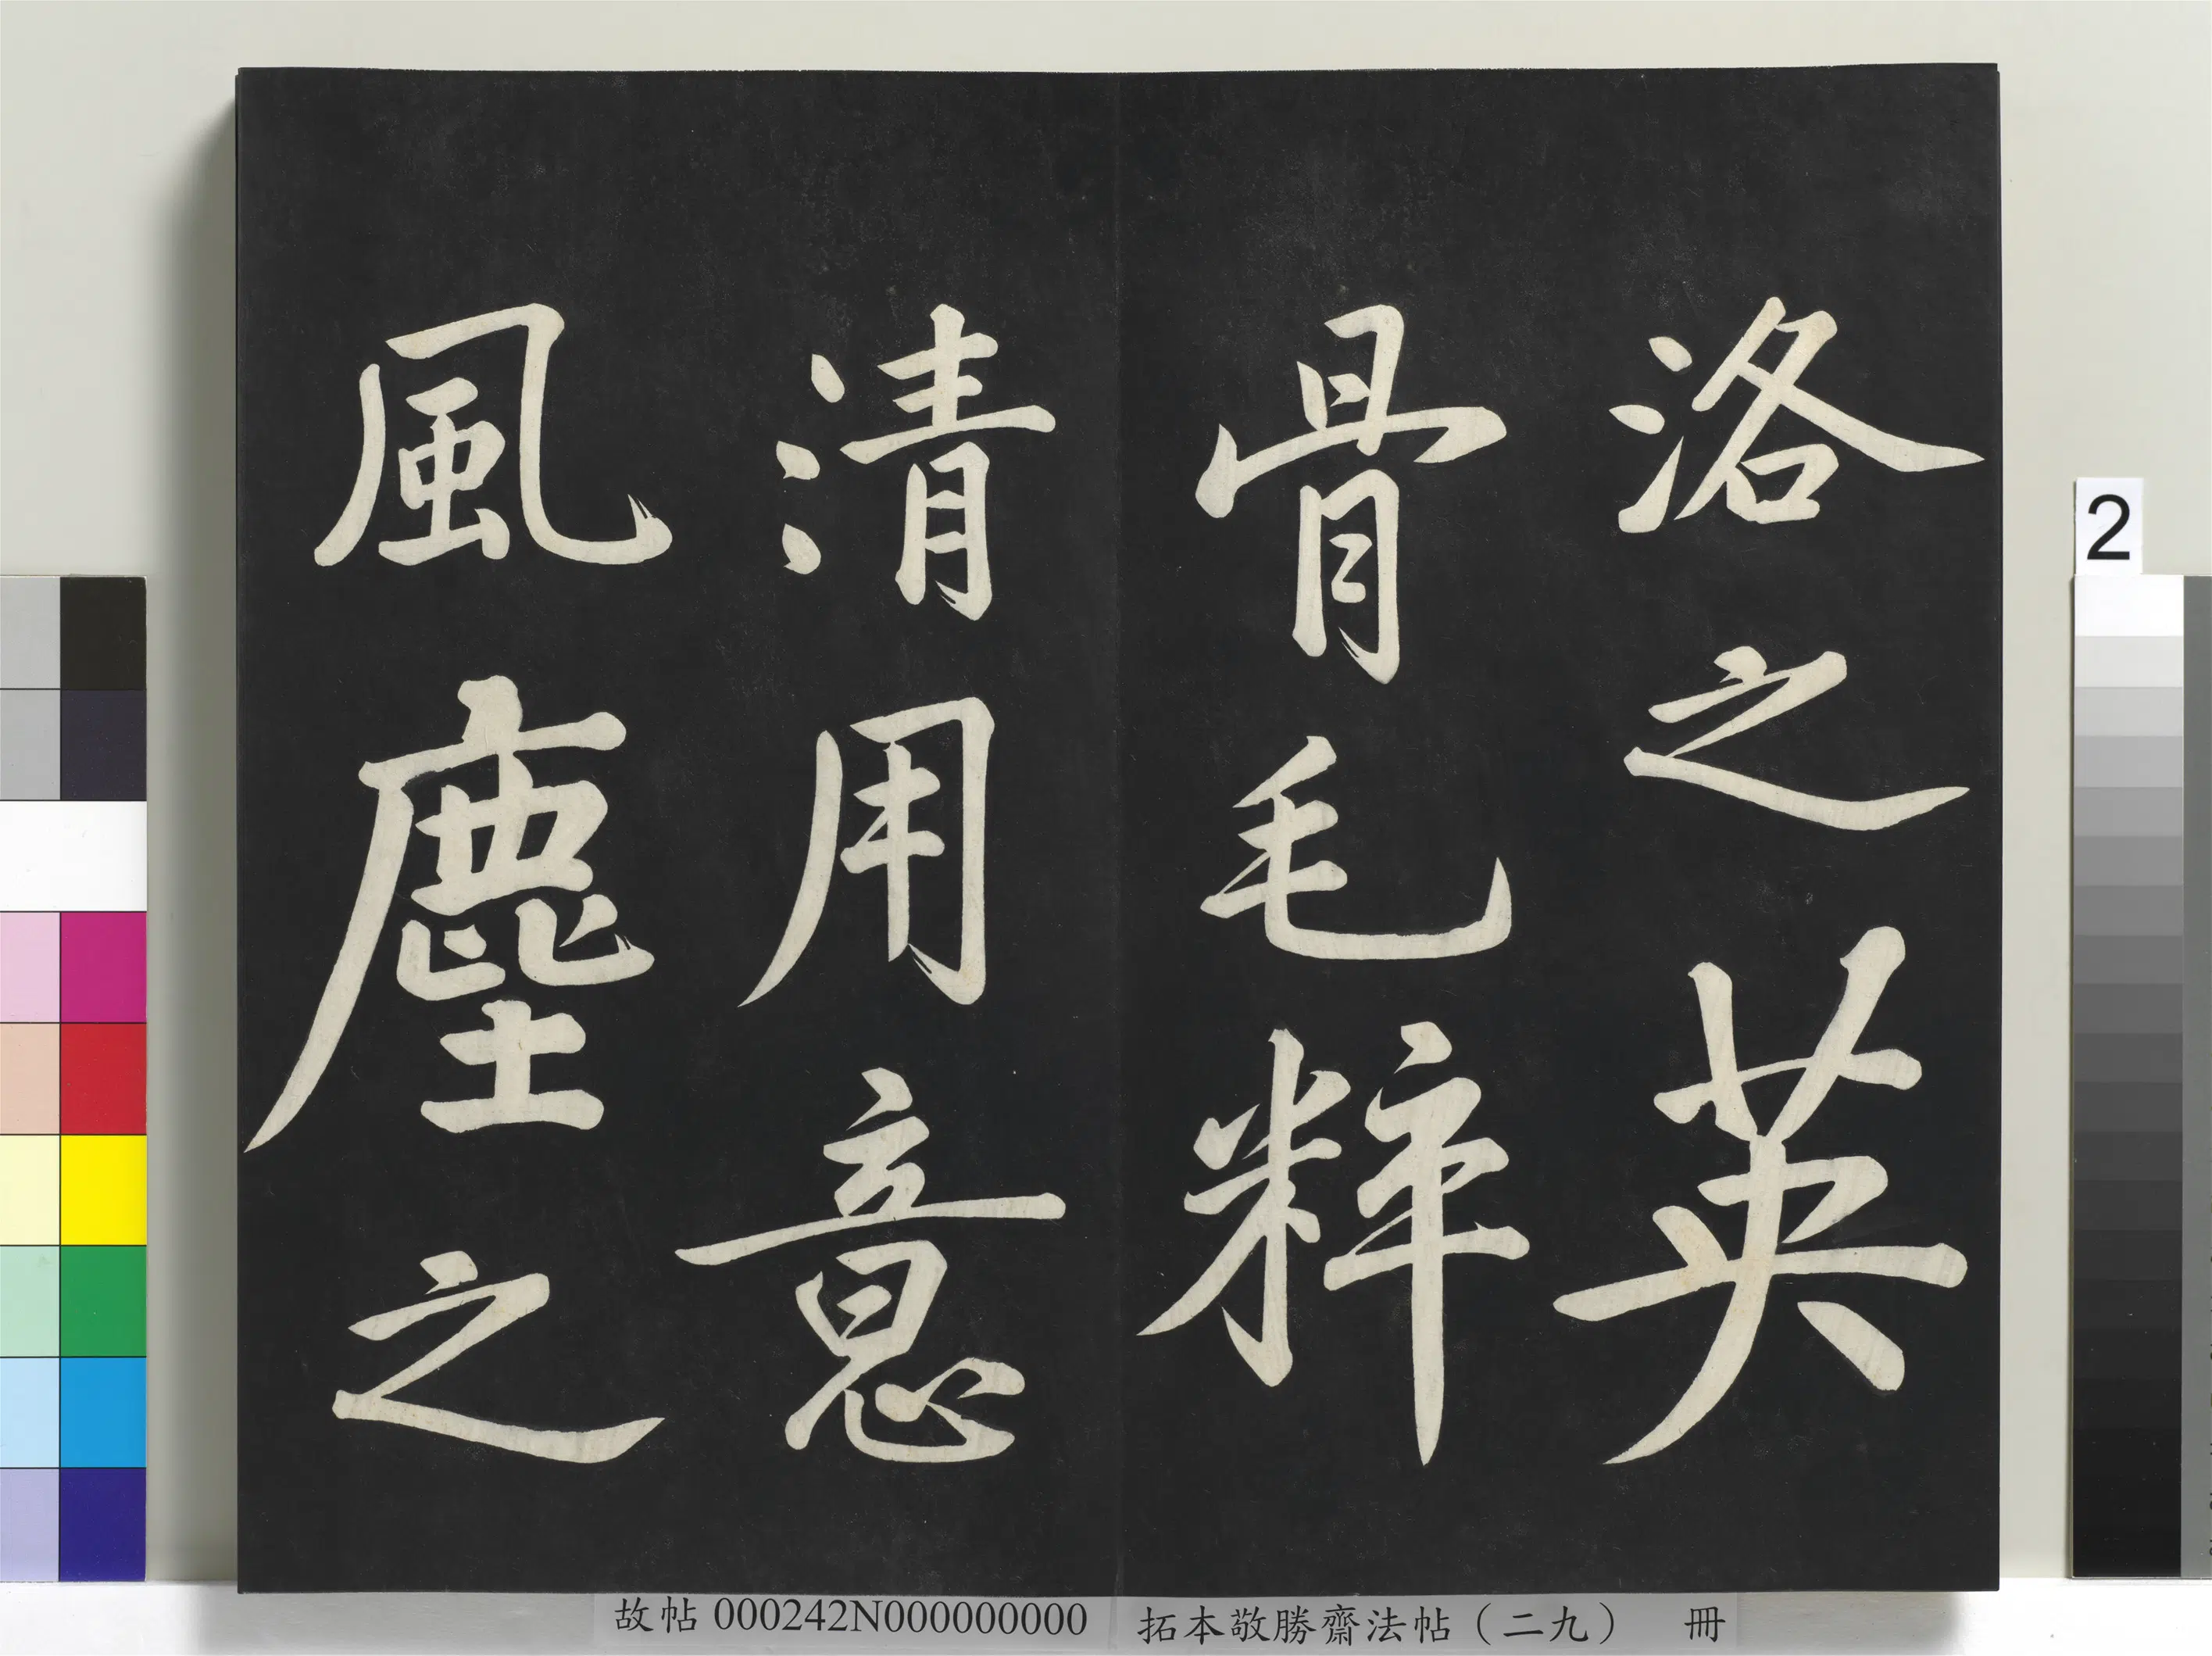 洛之英
骨毛粹
清用意
風塵之
2
故帖 000242N000000000 拓本敬勝齋法帖（二九） 冊